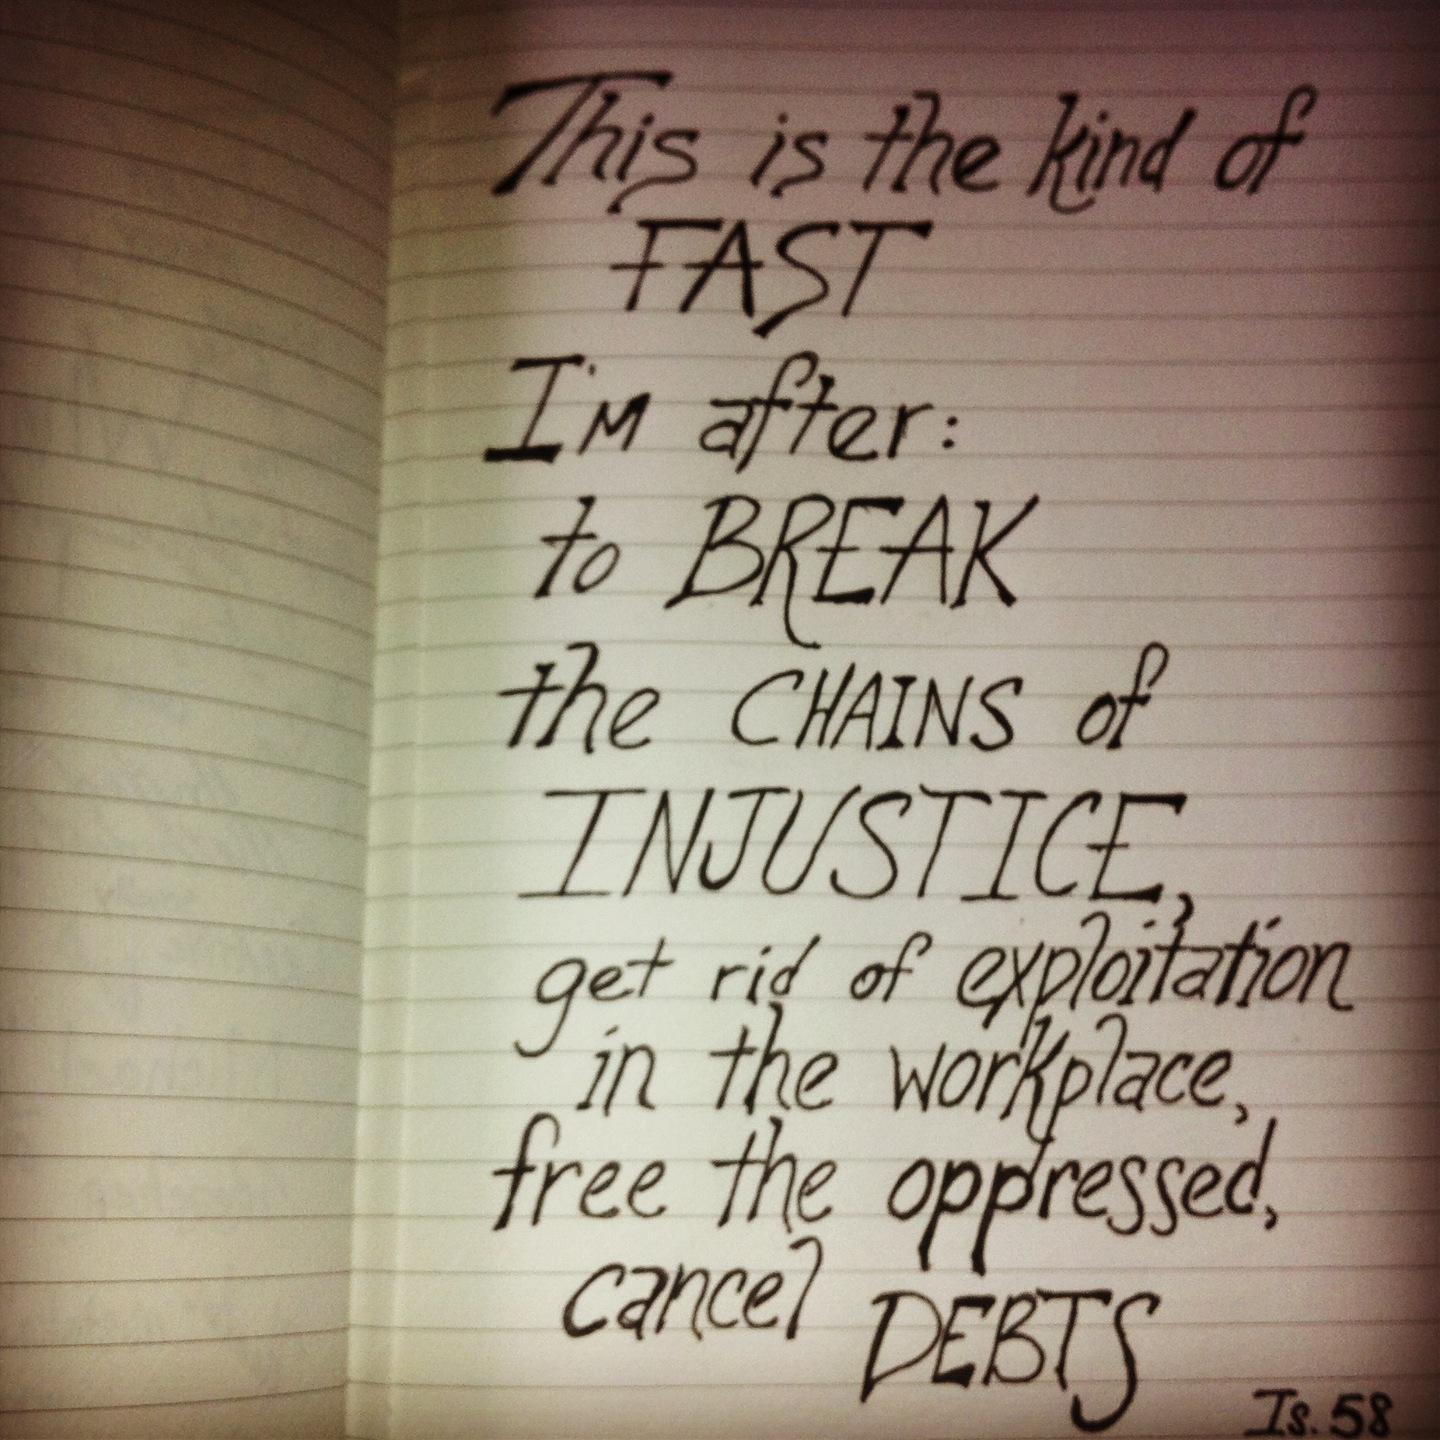 This is the kind of
FAST
I'm after:
to BREAK
the CHAINS of
INJUSTICE,
get rid of exploitation
in the workplace,
free the oppressed,
cancel DEBTS
Is. 58